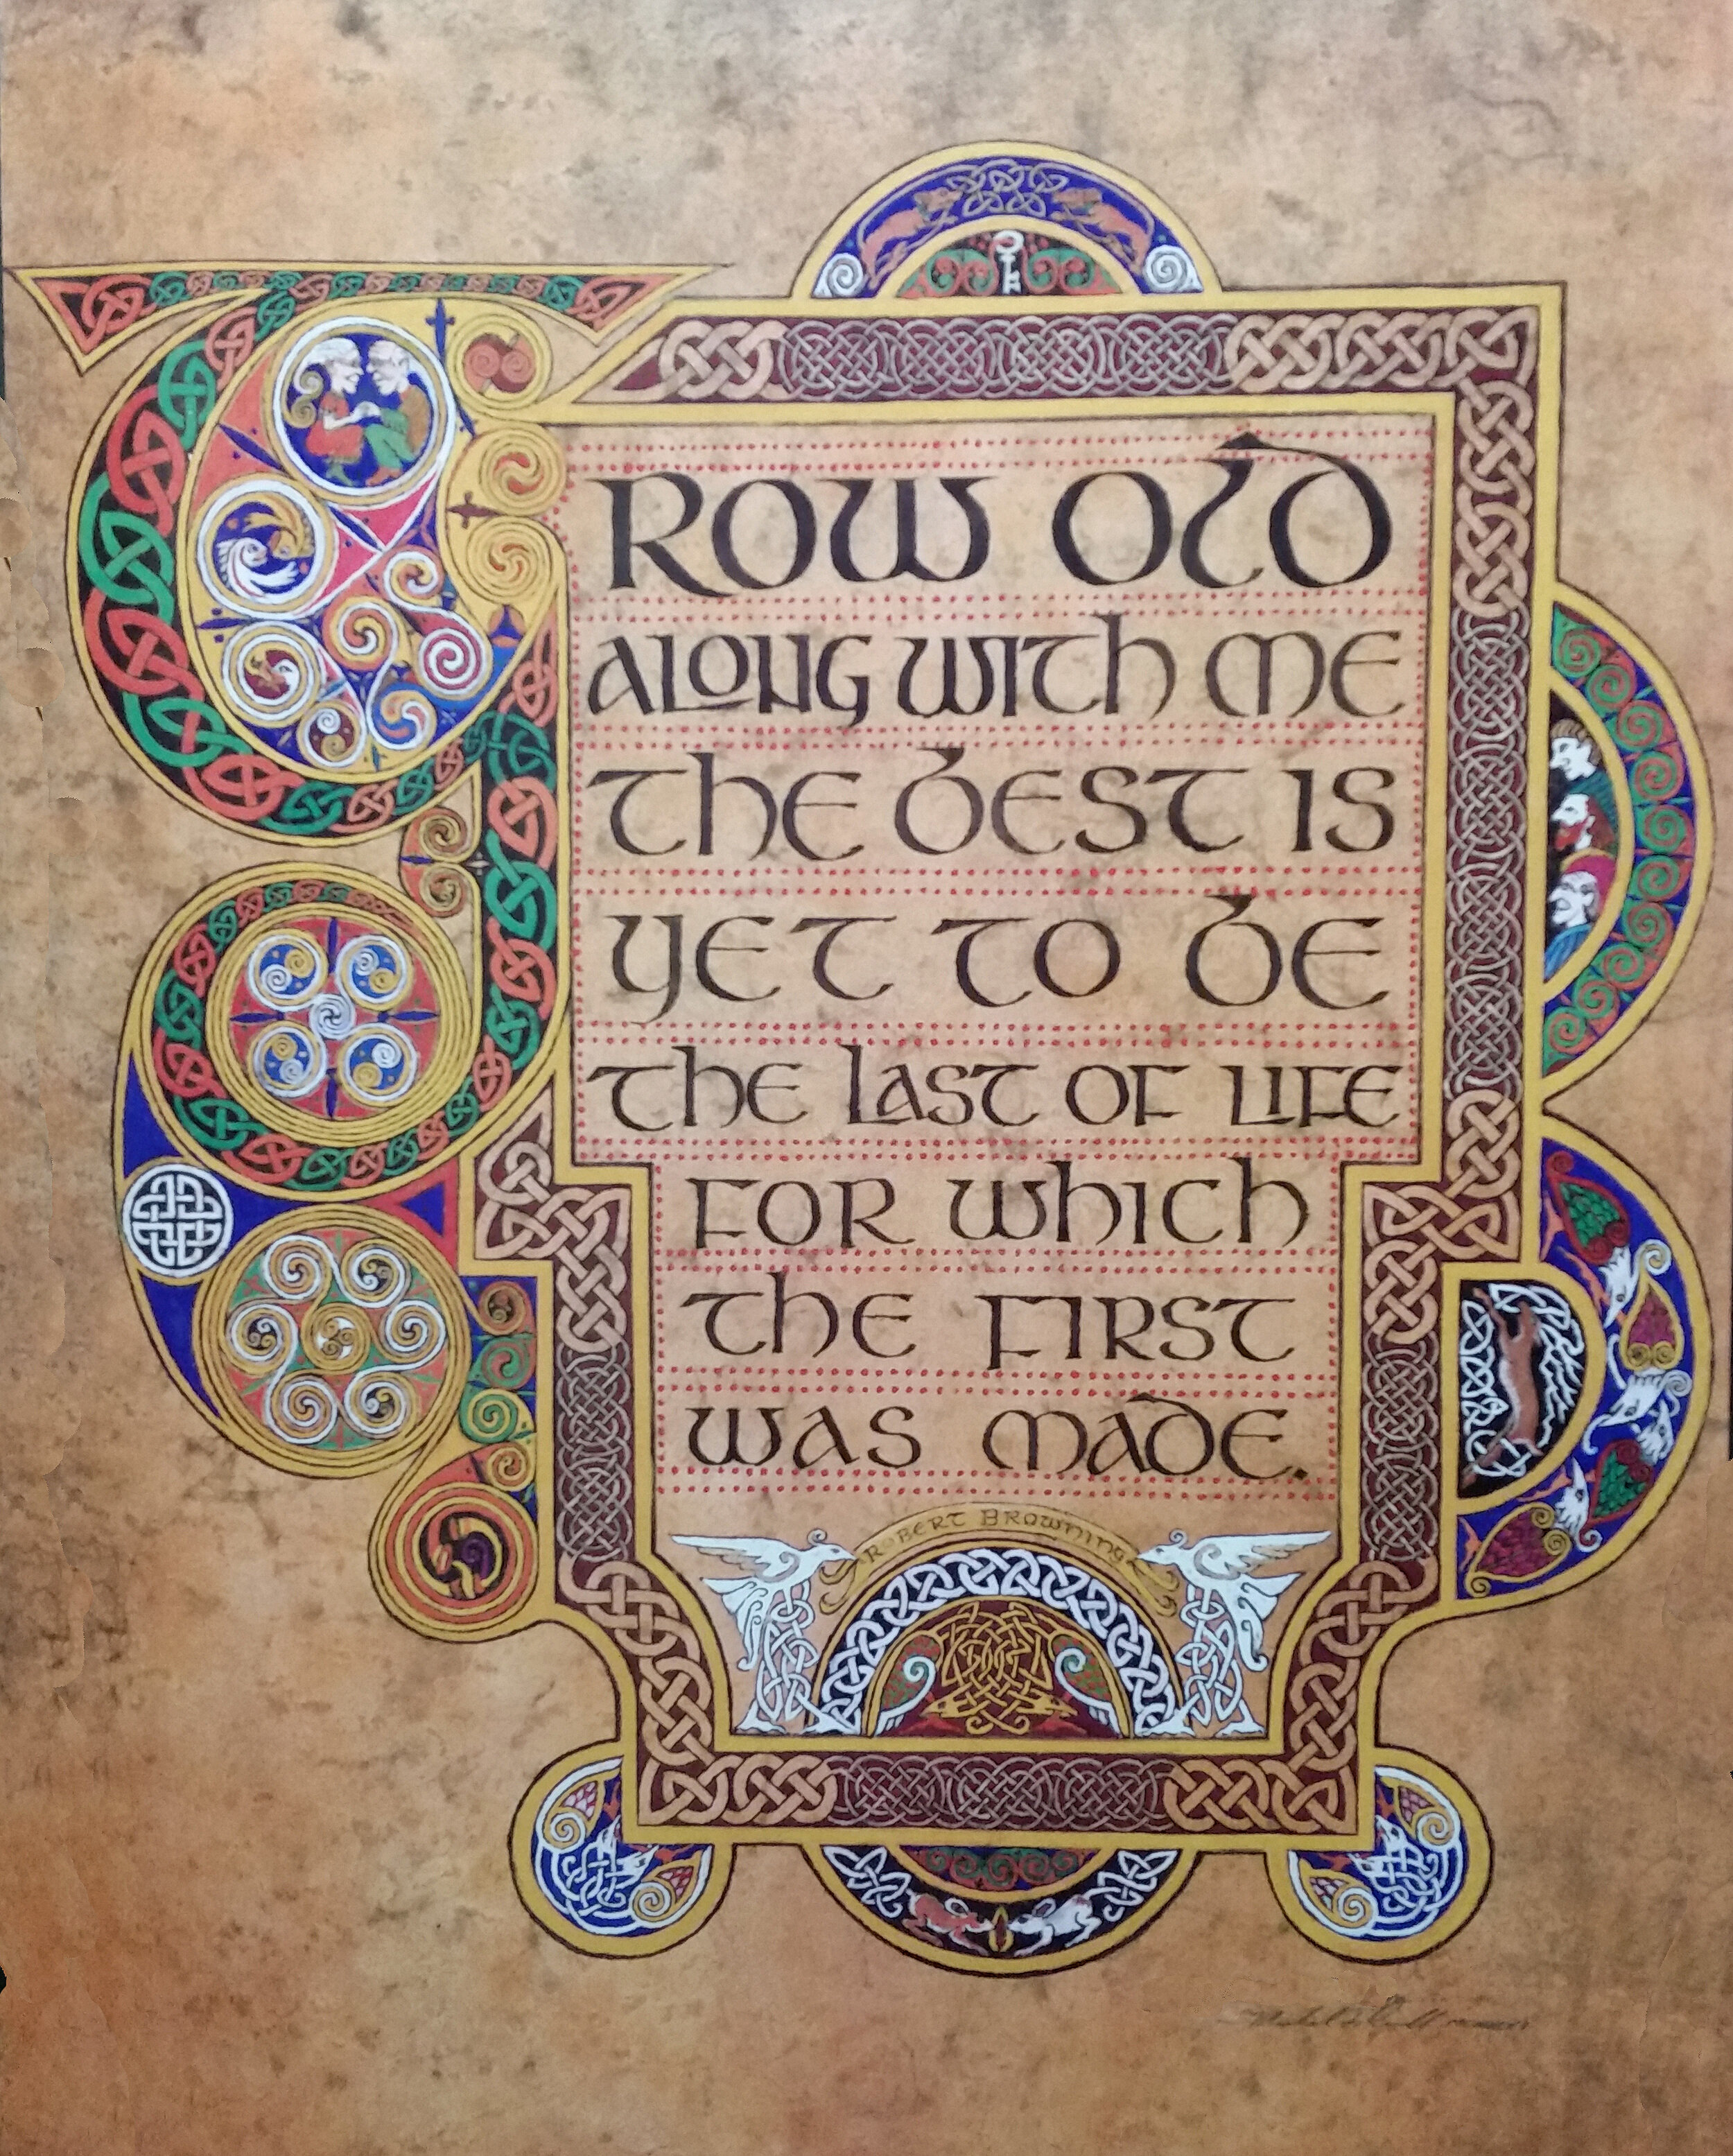 GROW OLD
ALONG WITH ME
THE BEST IS
YET TO BE
THE LAST OF LIFE
FOR WHICH
THE FIRST
WAS MADE.
ROBERT BROWNING